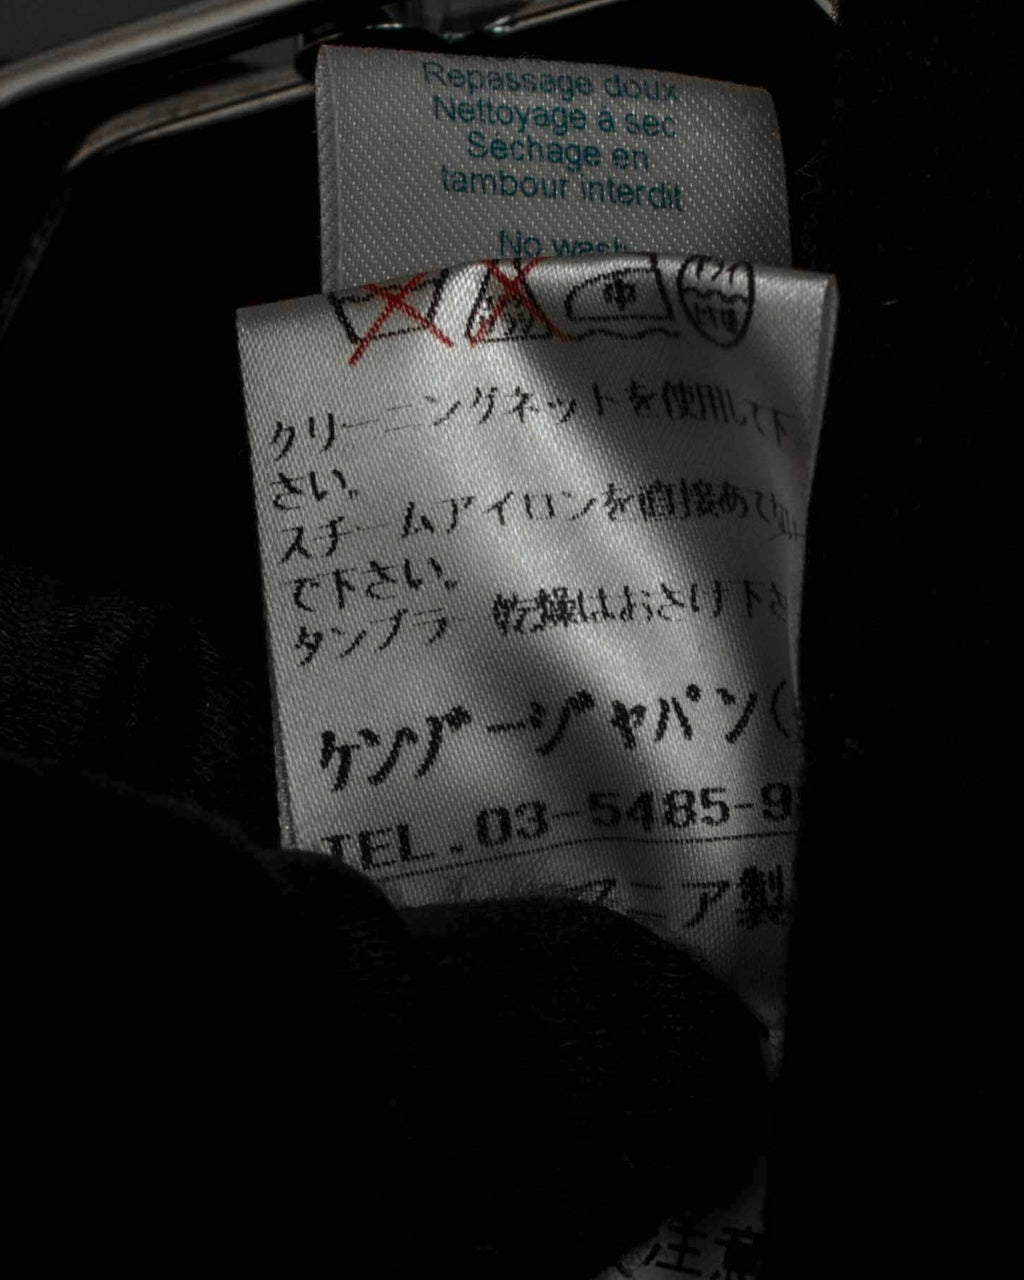 Repassage doux
Nettoyage à sec
Sechage en
tambour interdit
No wash
ドライ
クリーニングネットを使用して下
さい。
スチームアイロンを直接あてない
で下さい。
タンブラー乾燥はおさけ下さ
ケンゾージャパン(
TEL.03-5485-9
マニア製
(注意